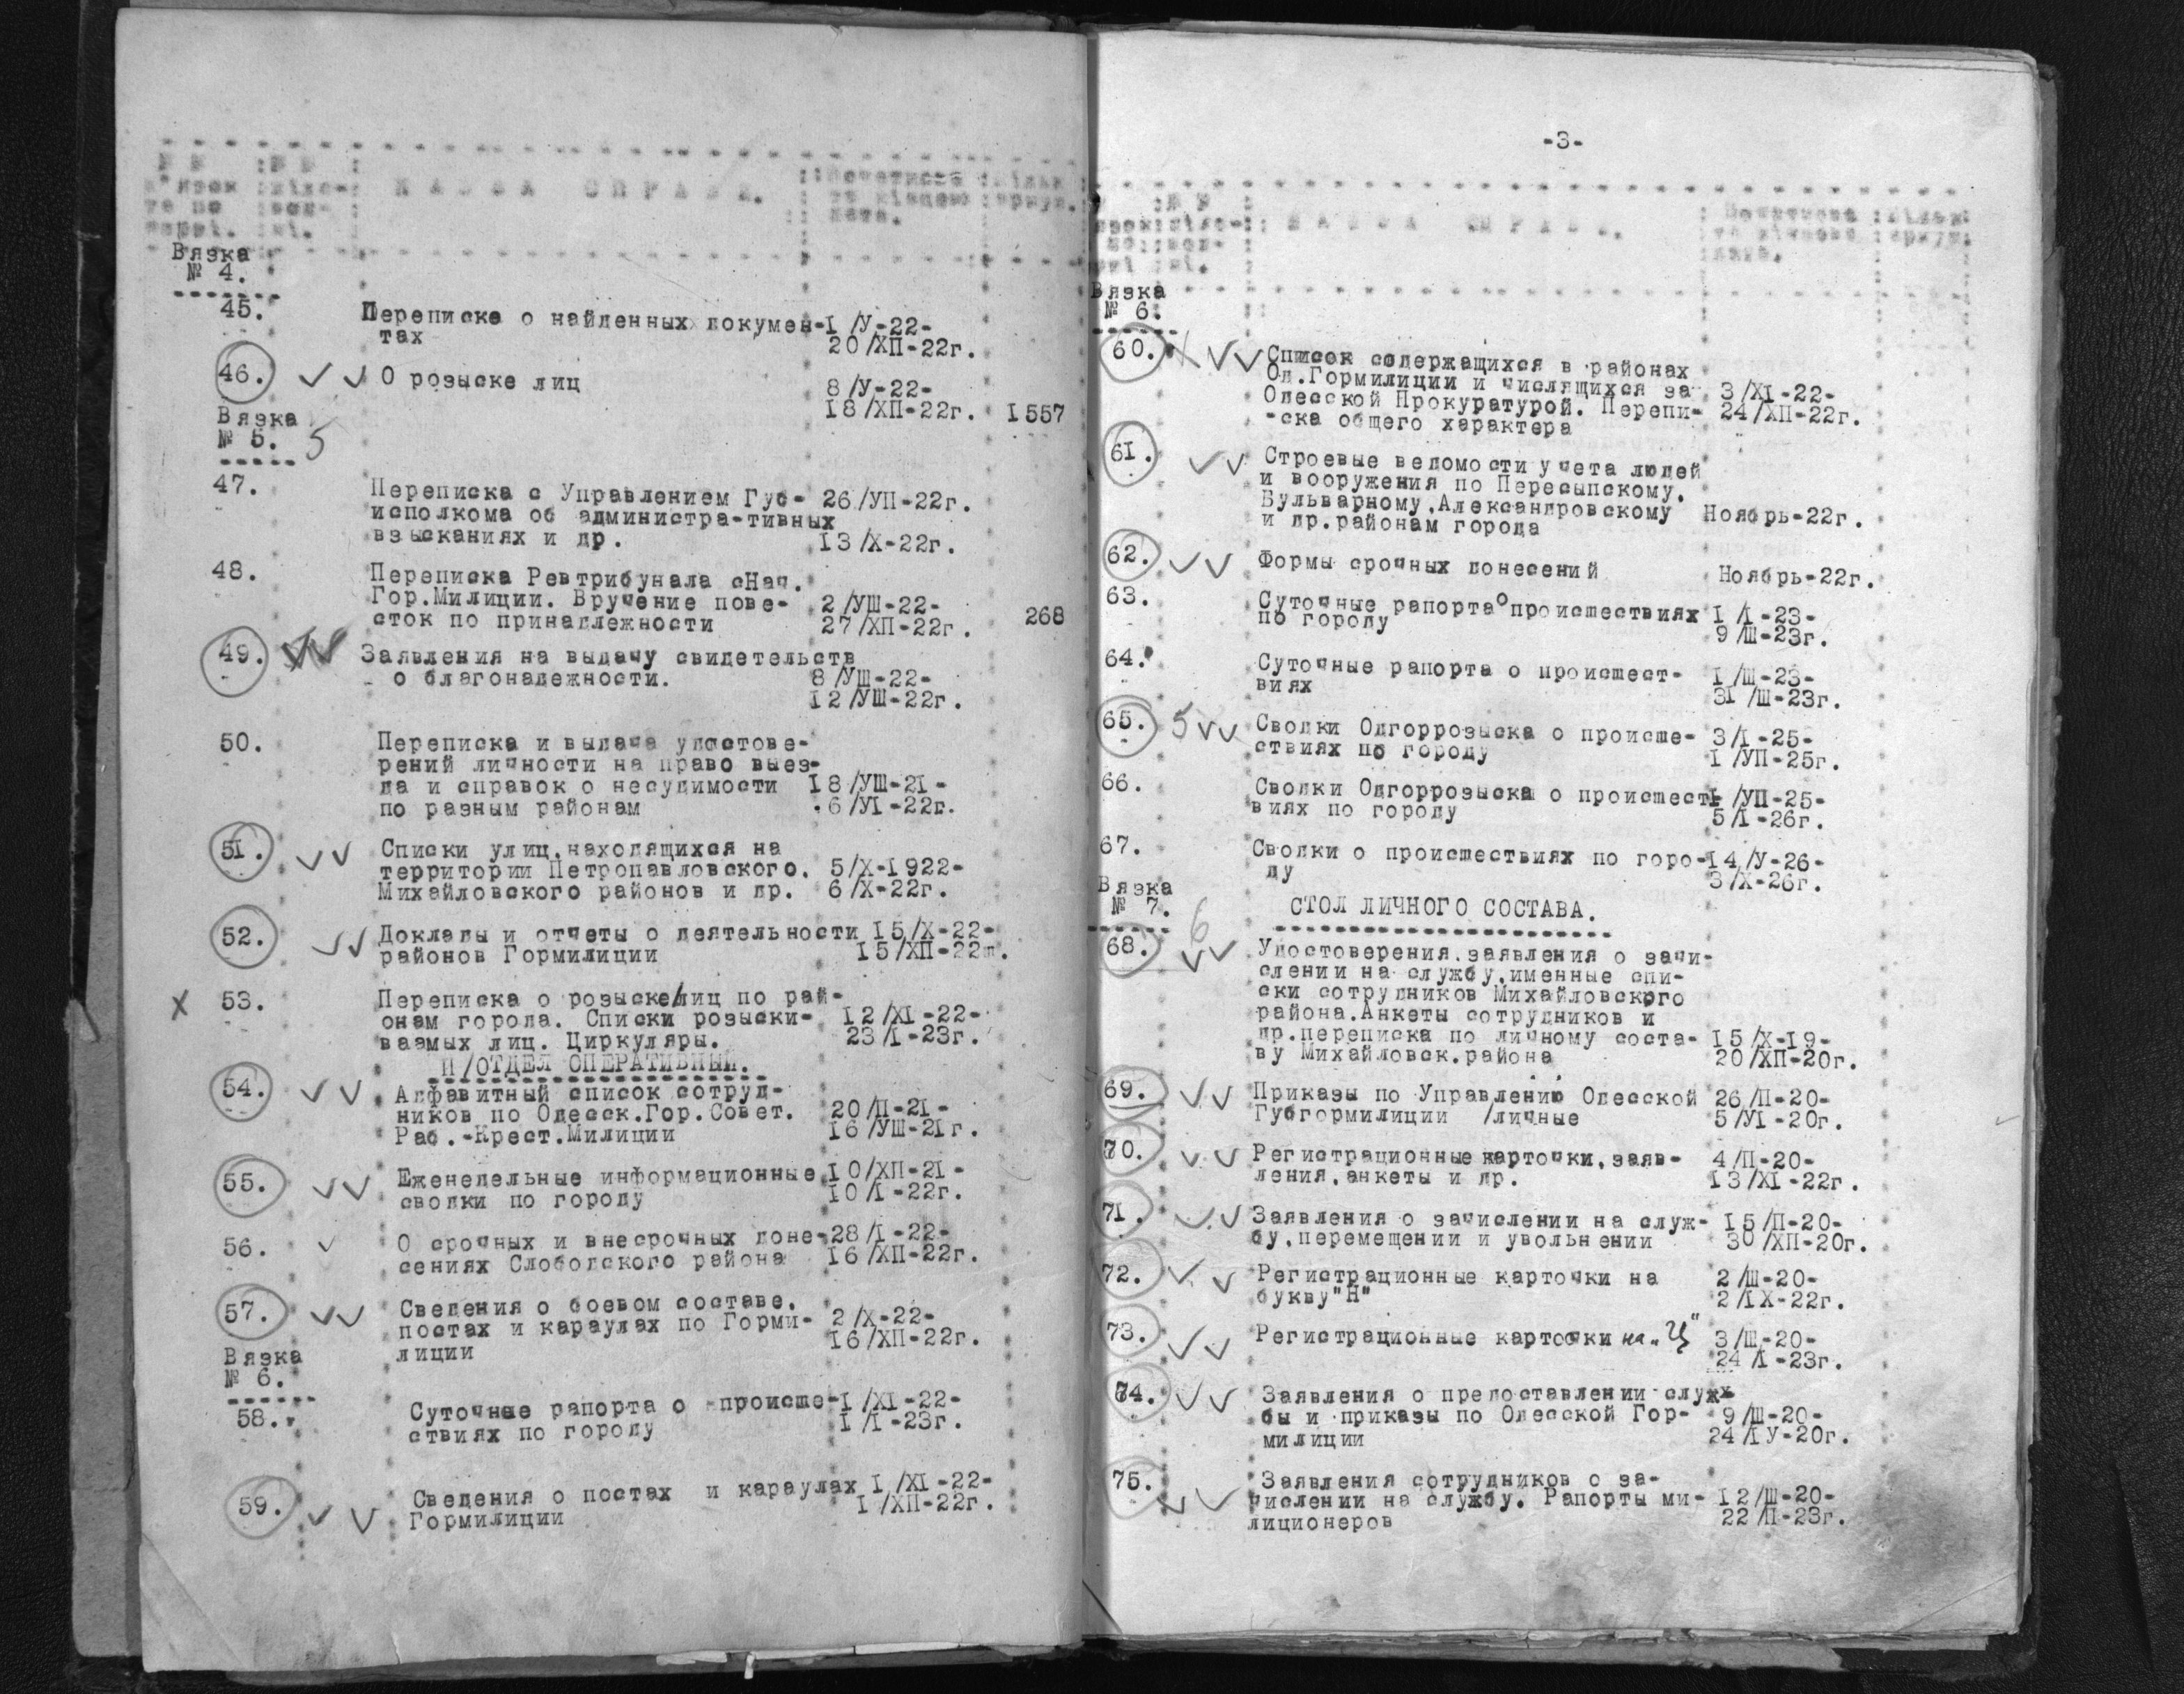 Н А З В А   С П Р А В И.
Вязка
№ 4.
45. Переписка о найденных докумен- I/У-22-
тах 20/ХП-22г.
46. О розыске лиц 8/У-22-
18/ХП-22г. 1557
Вязка
№ 5. 5
47. Переписка с Управлением Губ- 26/УП-22г.
исполкома об администра-тивных
взысканиях и др. 13/Х-22г.
48. Переписка Ревтрибунала сНач.
Гор.Милиции. Вручение пове- 2/УШ-22-
сток по принадлежности 27/ХП-22г. 268
49. Заявления на выдачу свидетельств
о благонадежности. 8/УШ-22-
12/УШ-22г.
50. Переписка и выдача удостове-
рений личности на право выез-
да и справок о несудимости 18/УШ-21-
по разным районам 6/УI-22г.
51. Списки улиц,находящихся на
территории Петропавловского, 5/Х-1922-
Михайловского районов и др. 6/Х-22г.
52. Доклады и отчеты о деятельности 15/Х-22-
районов Гормилиции 15/ХП-22г.
X 53. Переписка о розыске/лиц по рай-
онам города. Списки розыски- 12/ХI-22-
ваемых лиц. Циркуляры. 23/I-23г.
П/ОТДЕЛ ОПЕРАТИВНЫЙ.
54. Алфавитный список сотруд-
ников по Одесск.Гор.Совет. 20/П-21-
Раб.-Крест.Милиции 16/УШ-21г.
55. Еженедельные информационные 10/ХП-21-
сводки по городу 10/I-22г.
56. О срочных и внесрочных доне- 28/I-22-
сениях Слободского района 16/ХП-22г.
57. Сведения о боевом составе,
постах и караулах по Горми- 2/Х-22-
лиции 16/ХП-22г.
Вязка
№ 6.
58. Суточные рапорта о происше- I/ХI-22-
ствиях по городу I/I-23г.
59. Сведения о постах и караулах I/ХI-22-
Гормилиции I/ХП-22г.
-3-
Н А З В А   С П Р А В И.
Вязка
№ 6.
60. Список содержащихся в районах
Од.Гормилиции и числящихся за 3/ХI-22-
Одесской Прокуратурой. Перепи- 24/ХП-22г.
-ска общего характера
61. Строевые ведомости учета людей
и вооружения по Пересыпскому,
Бульварному,Александровскому Ноябрь-22г.
и др.районам города
62. Формы срочных донесений Ноябрь-22г.
63. Суточные рапорта о происшествиях I/I-23-
по городу 9/Ш-23г.
64. Суточные рапорта о происшест- I/Ш-23-
виях 31/Ш-23г.
65. 5 Сводки Одгоррозыска о происше- 3/I-25-
ствиях по городу I/УП-25г.
66. Сводки Одгоррозыска о происшест- I/УП-25-
виях по городу 5/I-26г.
67. Сводки о происшествиях по горо- 14/У-26-
ду 3/Х-26г.
Вязка
№ 7. 6
СТОЛ ЛИЧНОГО СОСТАВА.
68. Удостоверения,заявления о зачи-
слении на службу,именные спи-
ски сотрудников Михайловского
района.Анкеты сотрудников и
др.переписка по личному соста- 15/Х-19-
ву Михайловск.района 20/ХП-20г.
69. Приказы по Управлению Одесской 26/П-20-
Губгормилиции /личные 5/УI-20г.
70. Регистрационные карточки,заяв- 4/П-20-
ления,анкеты и др. 13/ХI-22г.
71. Заявления о зачислении на служ- 15/П-20-
бу,перемещении и увольнении 30/ХП-20г.
72. Регистрационные карточки на 2/Ш-20-
букву"Н" 2/IХ-22г.
73. Регистрационные карточки на „Ц" 3/Ш-20-
24/I-23г.
74. Заявления о предоставлении служ-
бы и приказы по Одесской Гор- 9/Ш-20-
милиции 24/IУ-20г.
75. Заявления сотрудников о за-
числении на службу. Рапорты ми- 12/Ш-20-
лиционеров 22/П-23г.